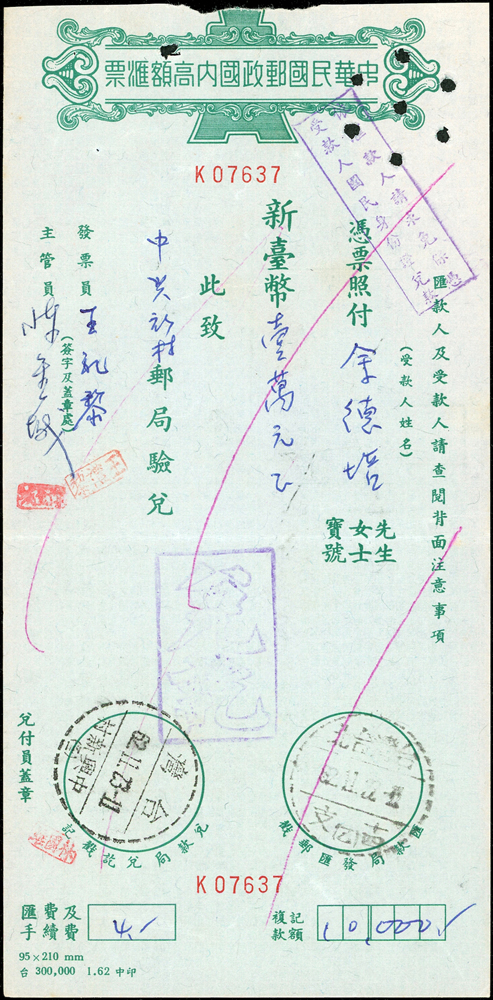 中華民國郵政國內高額滙票
K 07637
受款人國民身份證兌款
滙款人及受款人請查閱背面注意事項
憑票照付 余德培
(受款人姓名)
先生
女士
寶號
新臺幣壹萬元正
此致
中興新村郵局驗兌
發票員
主管員
(簽字及蓋章處)
兌付員蓋章
台灣
62.11.23-11
中興新村
兌款局兌訖戳記
滙款局發滙郵戳
K 07637
滙費及
手續費
4.-
複記
款額
10,000.-
95×210 mm
台 300,000 1.62 中印